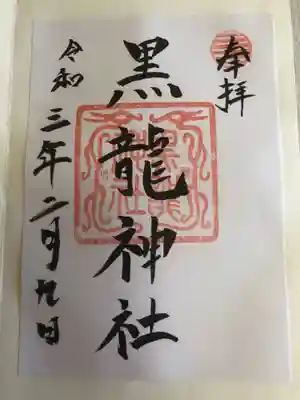 奉拝
黒龍神社
令和三年二月九日